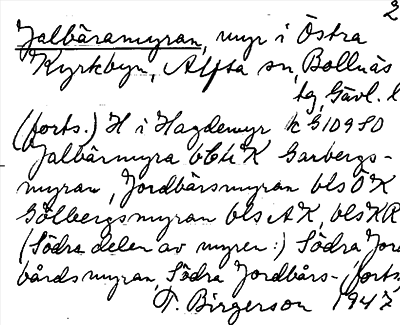 2
Jalbäramyran, myr i Östra
Kyrkbyn, Alfta sn, Bollnäs
tg, Gävl. l
(forts.) H i Hagdemyr k G 10980
Jalbärmyra bC4K Garbergs-
myran, Jordbärsmyran bls Ö K
Gölbergsmyran bls A K, bls K R
(Södra delen av myren:) Södra Jord
bårdsmyran, Södra Jordbärs- (forts
T. Birgerson 1947